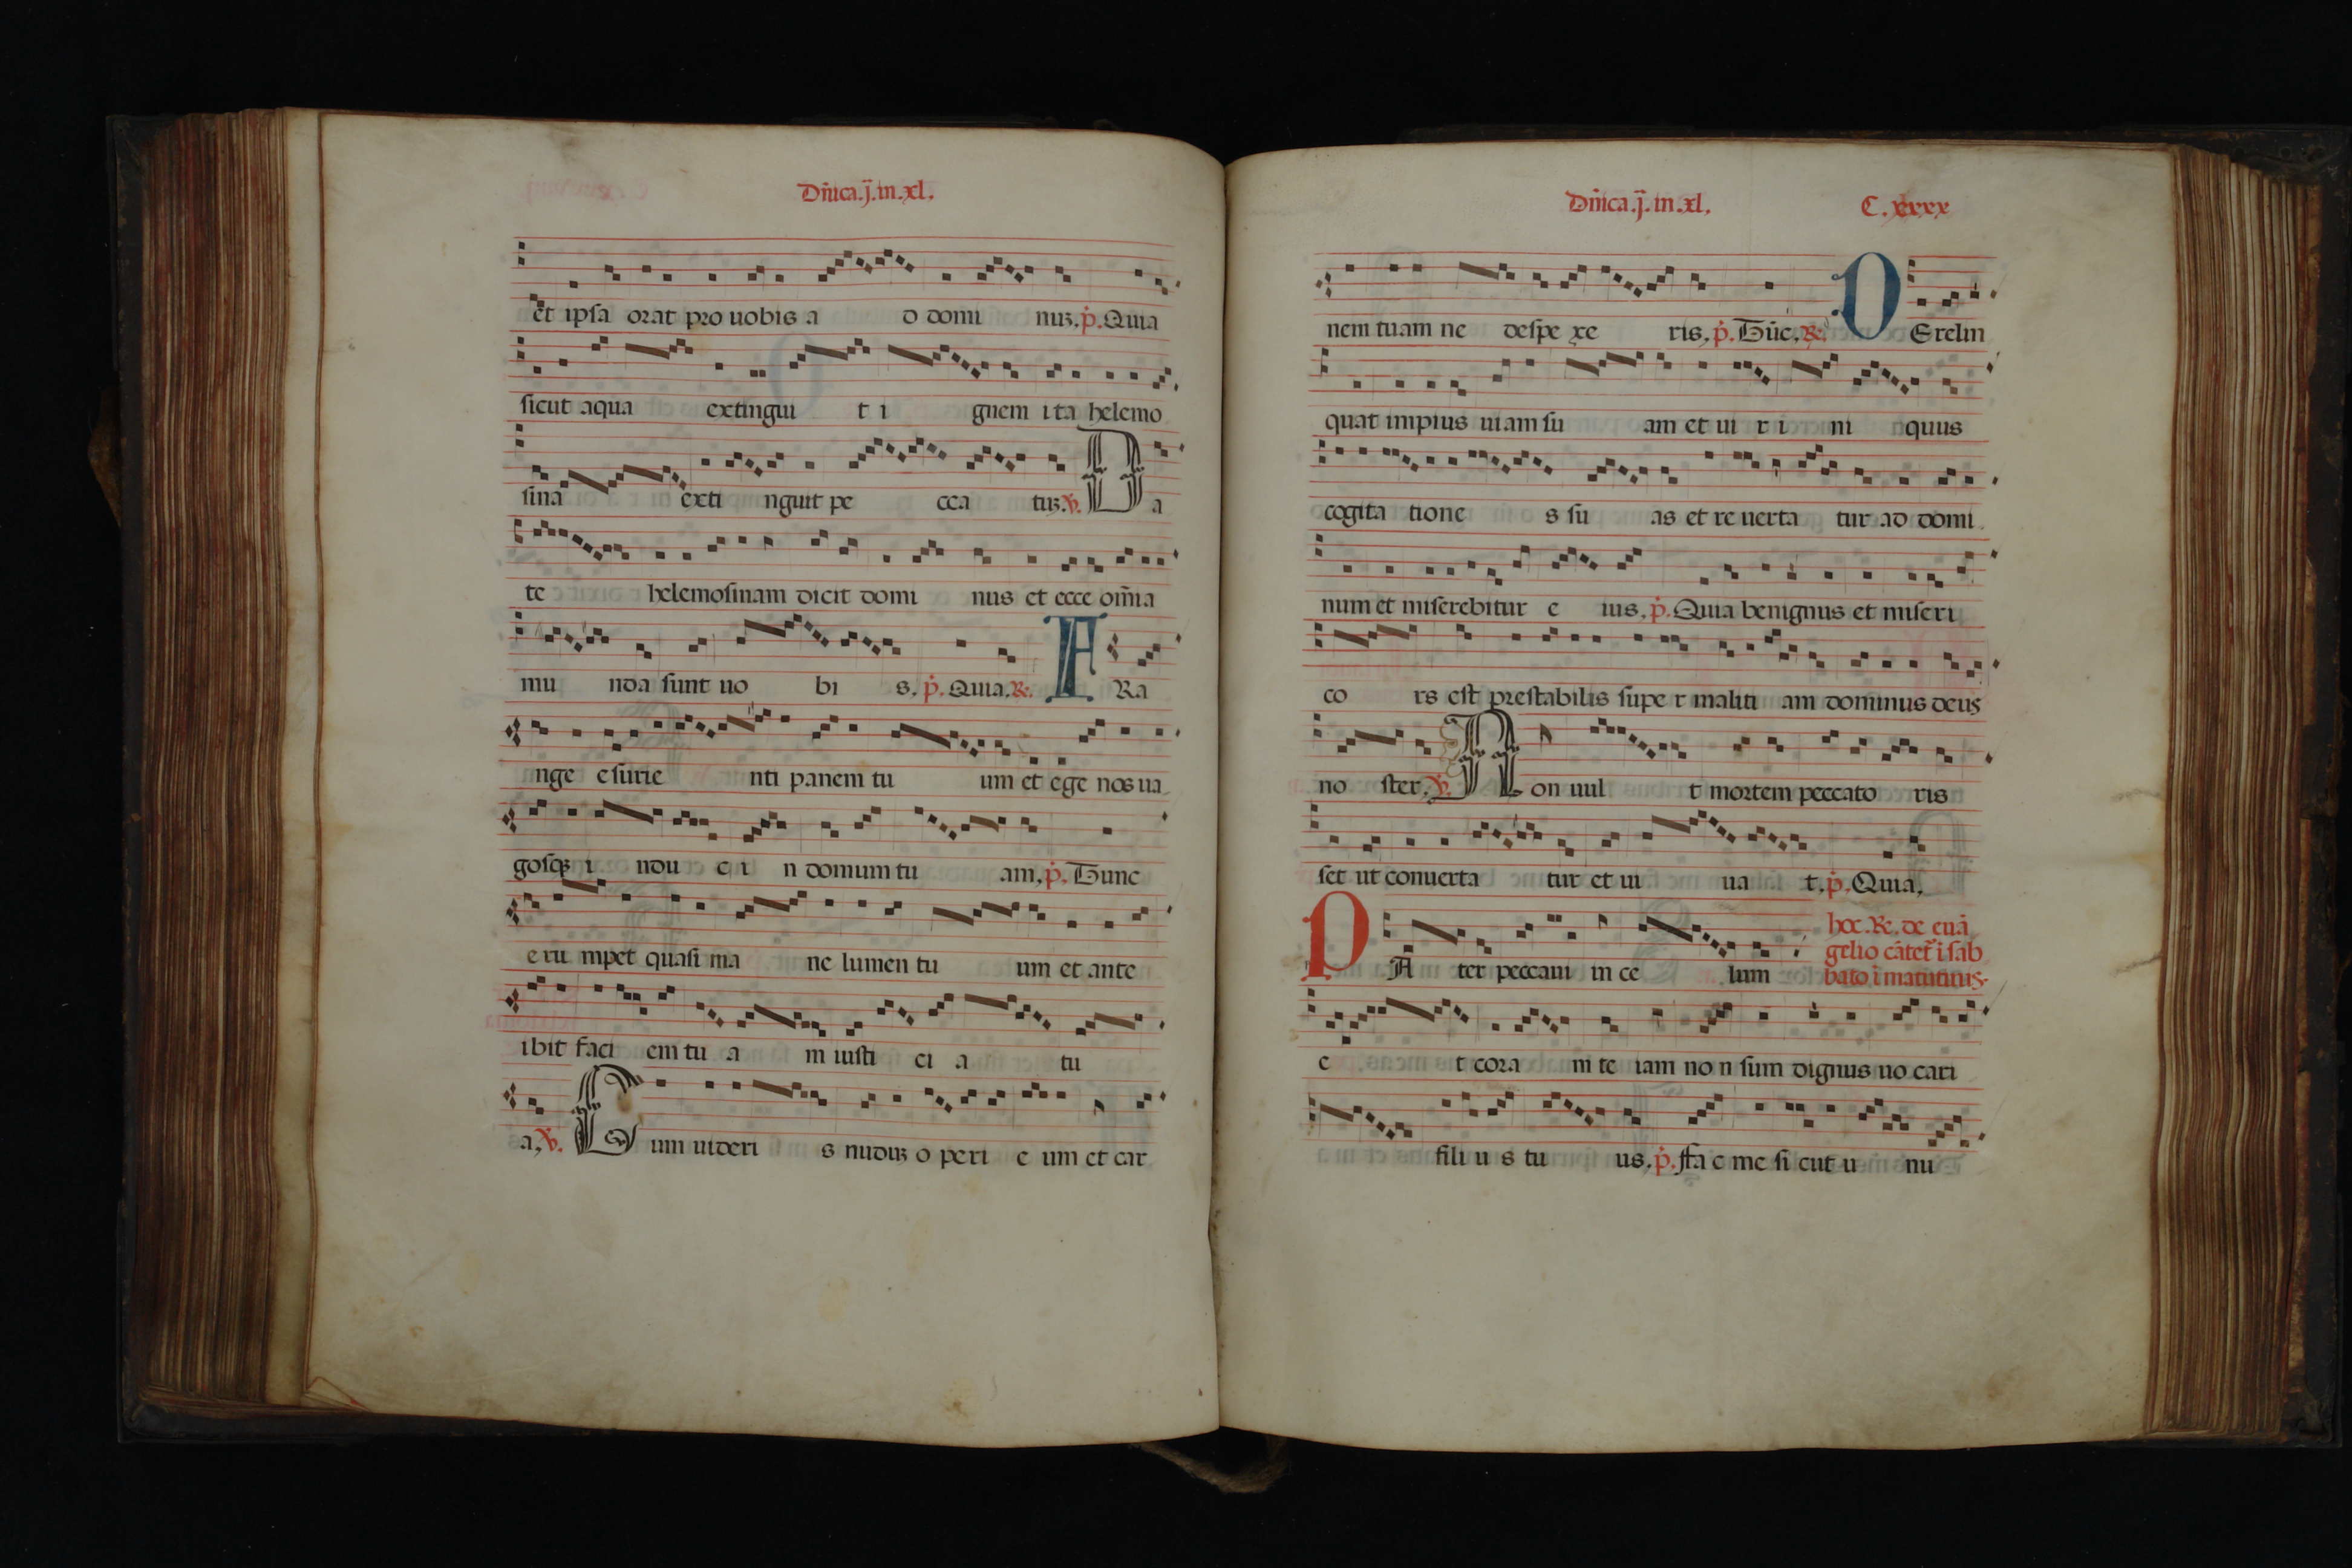 Dñica.j̄.in.xl.
et ipsa orat pro uobis a d domi nuꝫ. p̄. Quia
sicut aqua extingui t i gnem ita helemo
sina exti nguit pe cca tuꝫ. ℣. D a
te helemosinam dicit domi nus et ecce om̄ia
mu nda sunt uo bi s. p̄. Quia. ℟. F Ra
nge esurie nti panem tu um et ege nos ua
gosqꝫ i ndu c i n domum tu am, p̄. Tunc
eru mpet quasi ma ne lumen tu um et ante
ibit faci em tu a m iusti ci a tu
a, ℣. C um uideri s nuduꝫ o peri e um et car
Dñica.j̄.in.xl. C. xxxx
nem tuam ne despe xe ris, p̄. Tūc. ℟. D Erelin
quat impius uiam su am et ui r i ni quus
cogita tione s su as et re uerta tur ad domi
num et miserebitur e ius, p̄. Quia benignus et miseri
co rs est prestabilis supe r maliti am dominus deus
no ster, ℣. N on uul t mortem peccato ris
set ut conuerta tur et ui ua t. p̄. Quia,
P A ter peccaui in ce lum
hoc. ℟. de euā
gelio cātet̄ ī sab
bato ī matutinis.
e t cora m te iam no n sum dignus uo cari
fili u s tu us. p̄. ffa c me si cut u nu